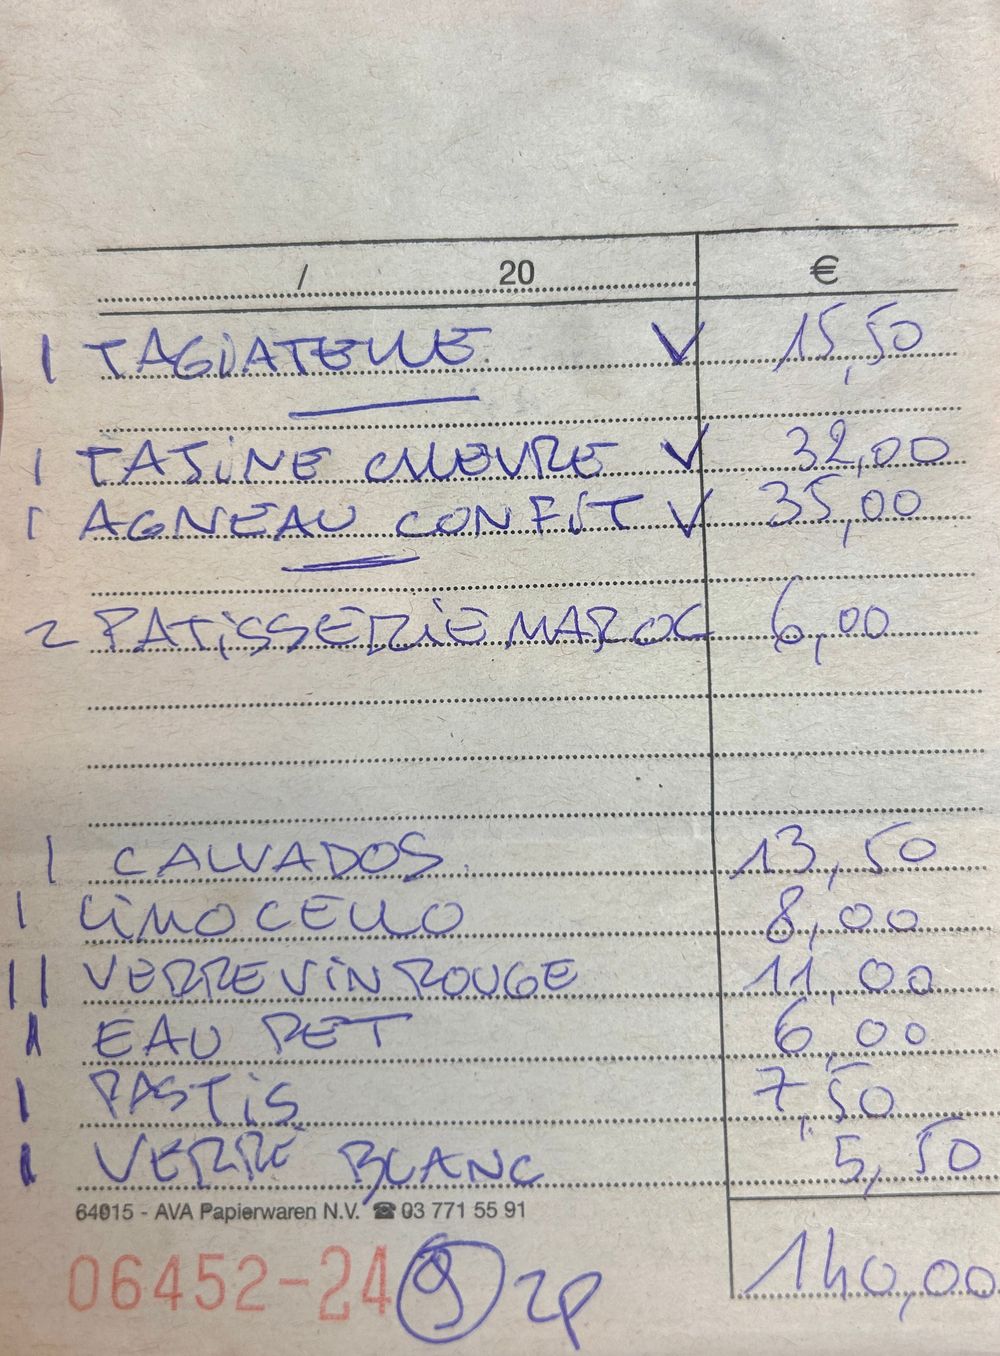 / 20 €
1 TAGLIATELLE V 15,50
1 TAJINE CHEVRE V 32,00
1 AGNEAU CONFIT V 35,00
2 PATISSERIE MAROC 6,00
1 CALVADOS 13,50
1 LIMOCELLO 8,00
11 VERRE VIN ROUGE 11,00
1 EAU PET 6,00
1 PASTIS 7,50
1 VERRE BLANC 5,50
64015 - AVA Papierwaren N.V. ☎ 03 771 55 91
140,00
06452-24 9 2p